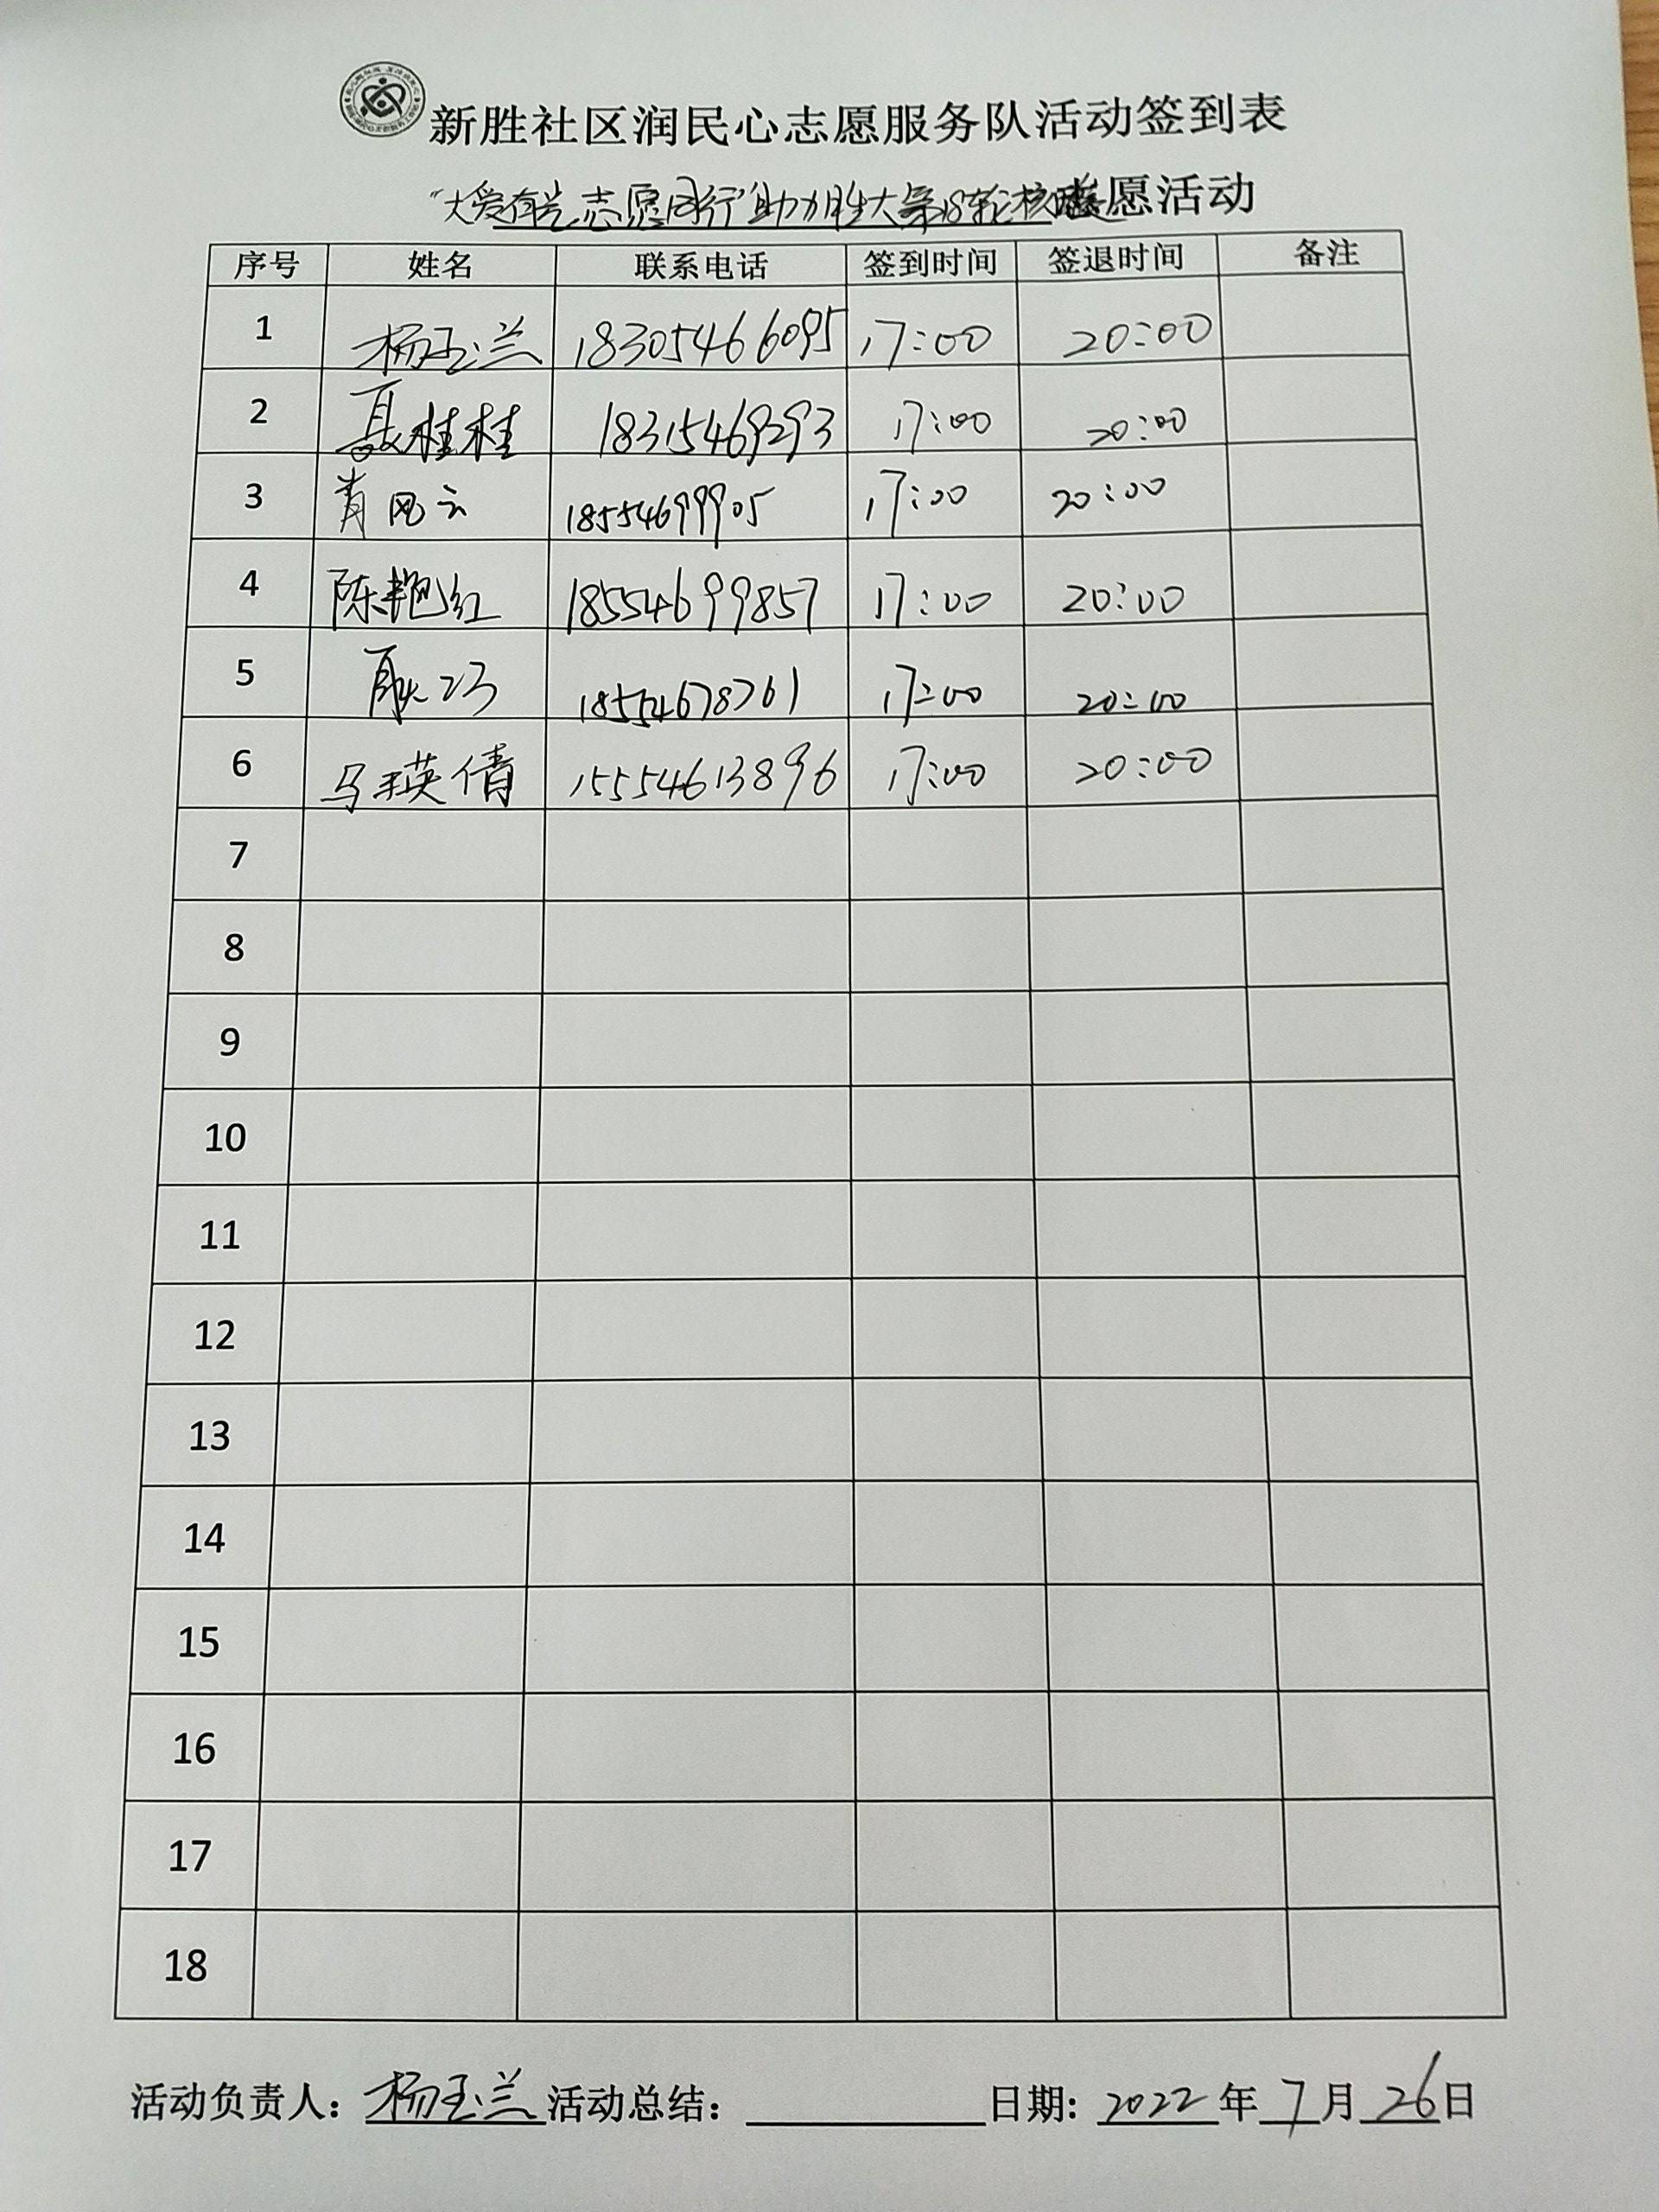 新胜社区润民心志愿服务队活动签到表
"大爱有光 志愿同行"助力胜大第18轮核 愿活动
序号 姓名 联系电话 签到时间 签退时间 备注
1 杨玉兰 18305466095 17:00 20:00
2 聂桂桂 18315469293 17:00 20:00
3 肖风云 18554699905 17:00 20:00
4 陈艳红 18554699857 17:00 20:00
5 18554678761 17:00 20:00
6 马瑛倩 15554613896 17:00 20:00
7
8
9
10
11
12
13
14
15
16
17
18
活动负责人: 杨玉兰 活动总结: 日期: 2022 年 7 月 26 日